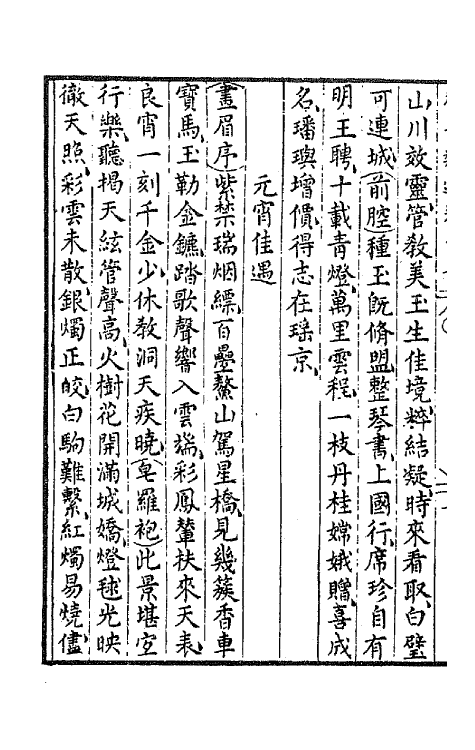 山川效靈管教美玉生佳境粹結凝時來看取白璧
可連城(前腔)種玉旣脩盟整琴書上國行席珍自有
明王聘十載靑燈萬里雲程一枝丹桂嫦娥贈喜成
名璠璵增價得志在瑤京
元宵佳遇
(畫眉序)紫禁瑞烟縹百疊鰲山駕星橋見幾簇香車
寶馬玉勒金鑣踏歌聲響入雲端彩鳳輦扶來天表
良宵一刻千金少休教洞天疾曉(皂羅袍)此景堪宜
行樂聽揭天絃管聲高火樹花開滿城嬌燈毬光映
徹天照彩雲未散銀燭正皎白駒難繫紅燭易燒儘